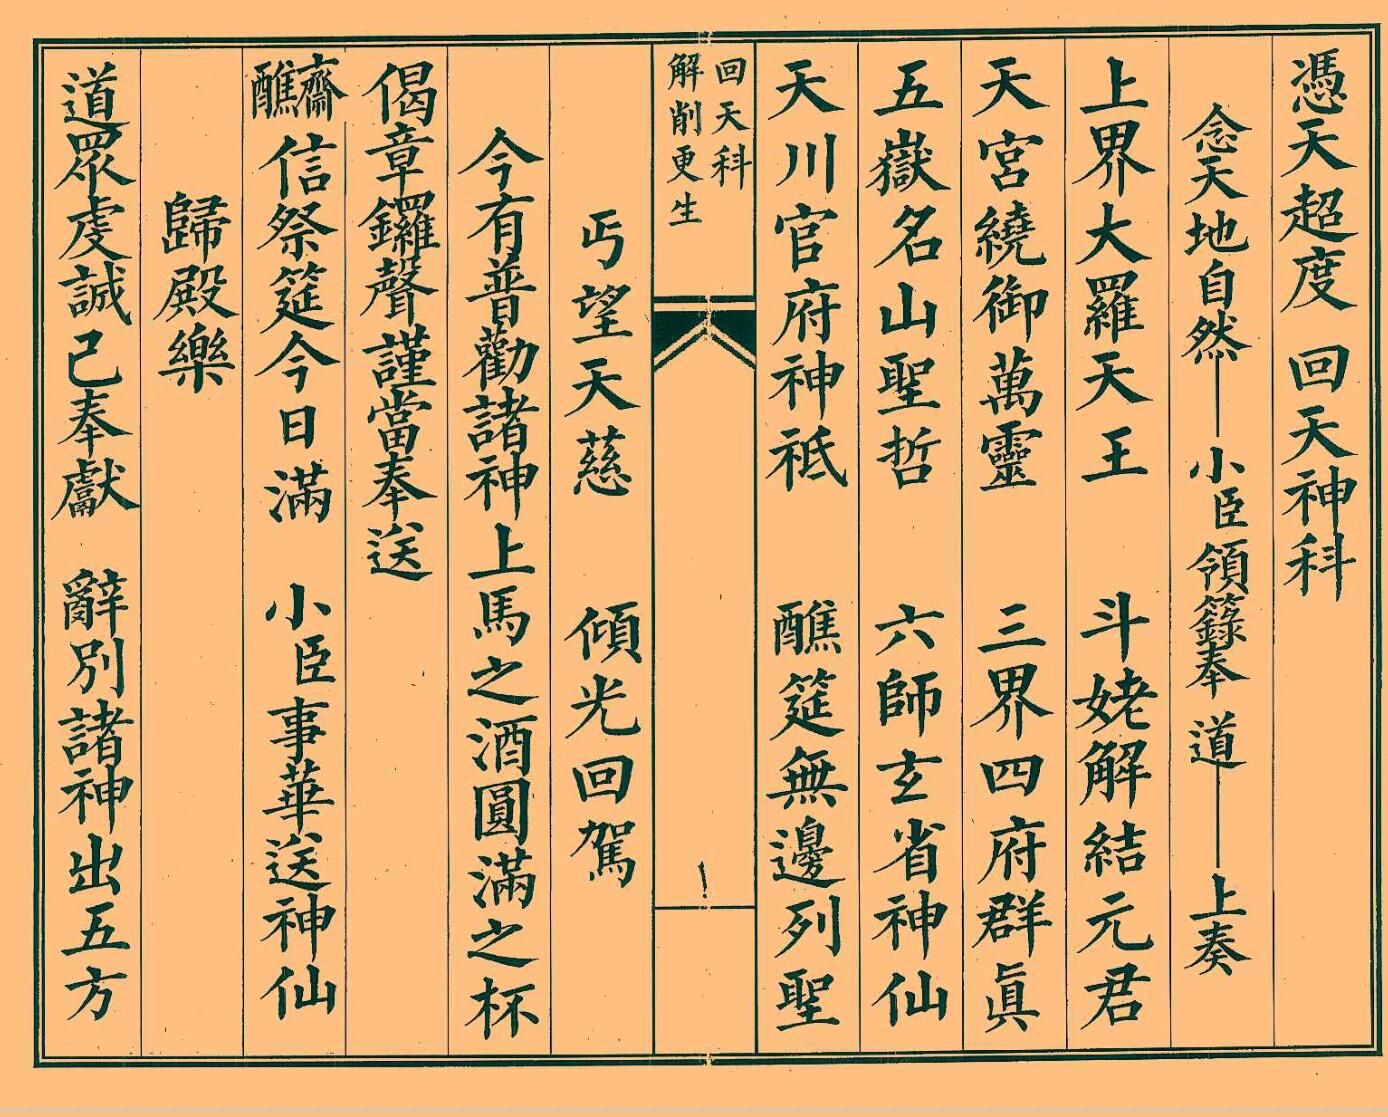 憑天超度　回天神科
念天地自然——小臣領籙奉　道——上奏
上界大羅天王　斗姥解結元君
天宮繞御萬靈　三界四府群眞
五嶽名山聖哲　六師玄省神仙
天川官府神祇　醮筵無邊列聖
回天科
解削更生
一
丐望天慈　傾光回駕
今有普勸諸神上馬之酒圓滿之杯
偈章鑼聲謹當奉送
齋醮信祭筵今日滿　小臣事華送神仙
歸殿樂
道眾虔誠已奉獻　辭別諸神出五方